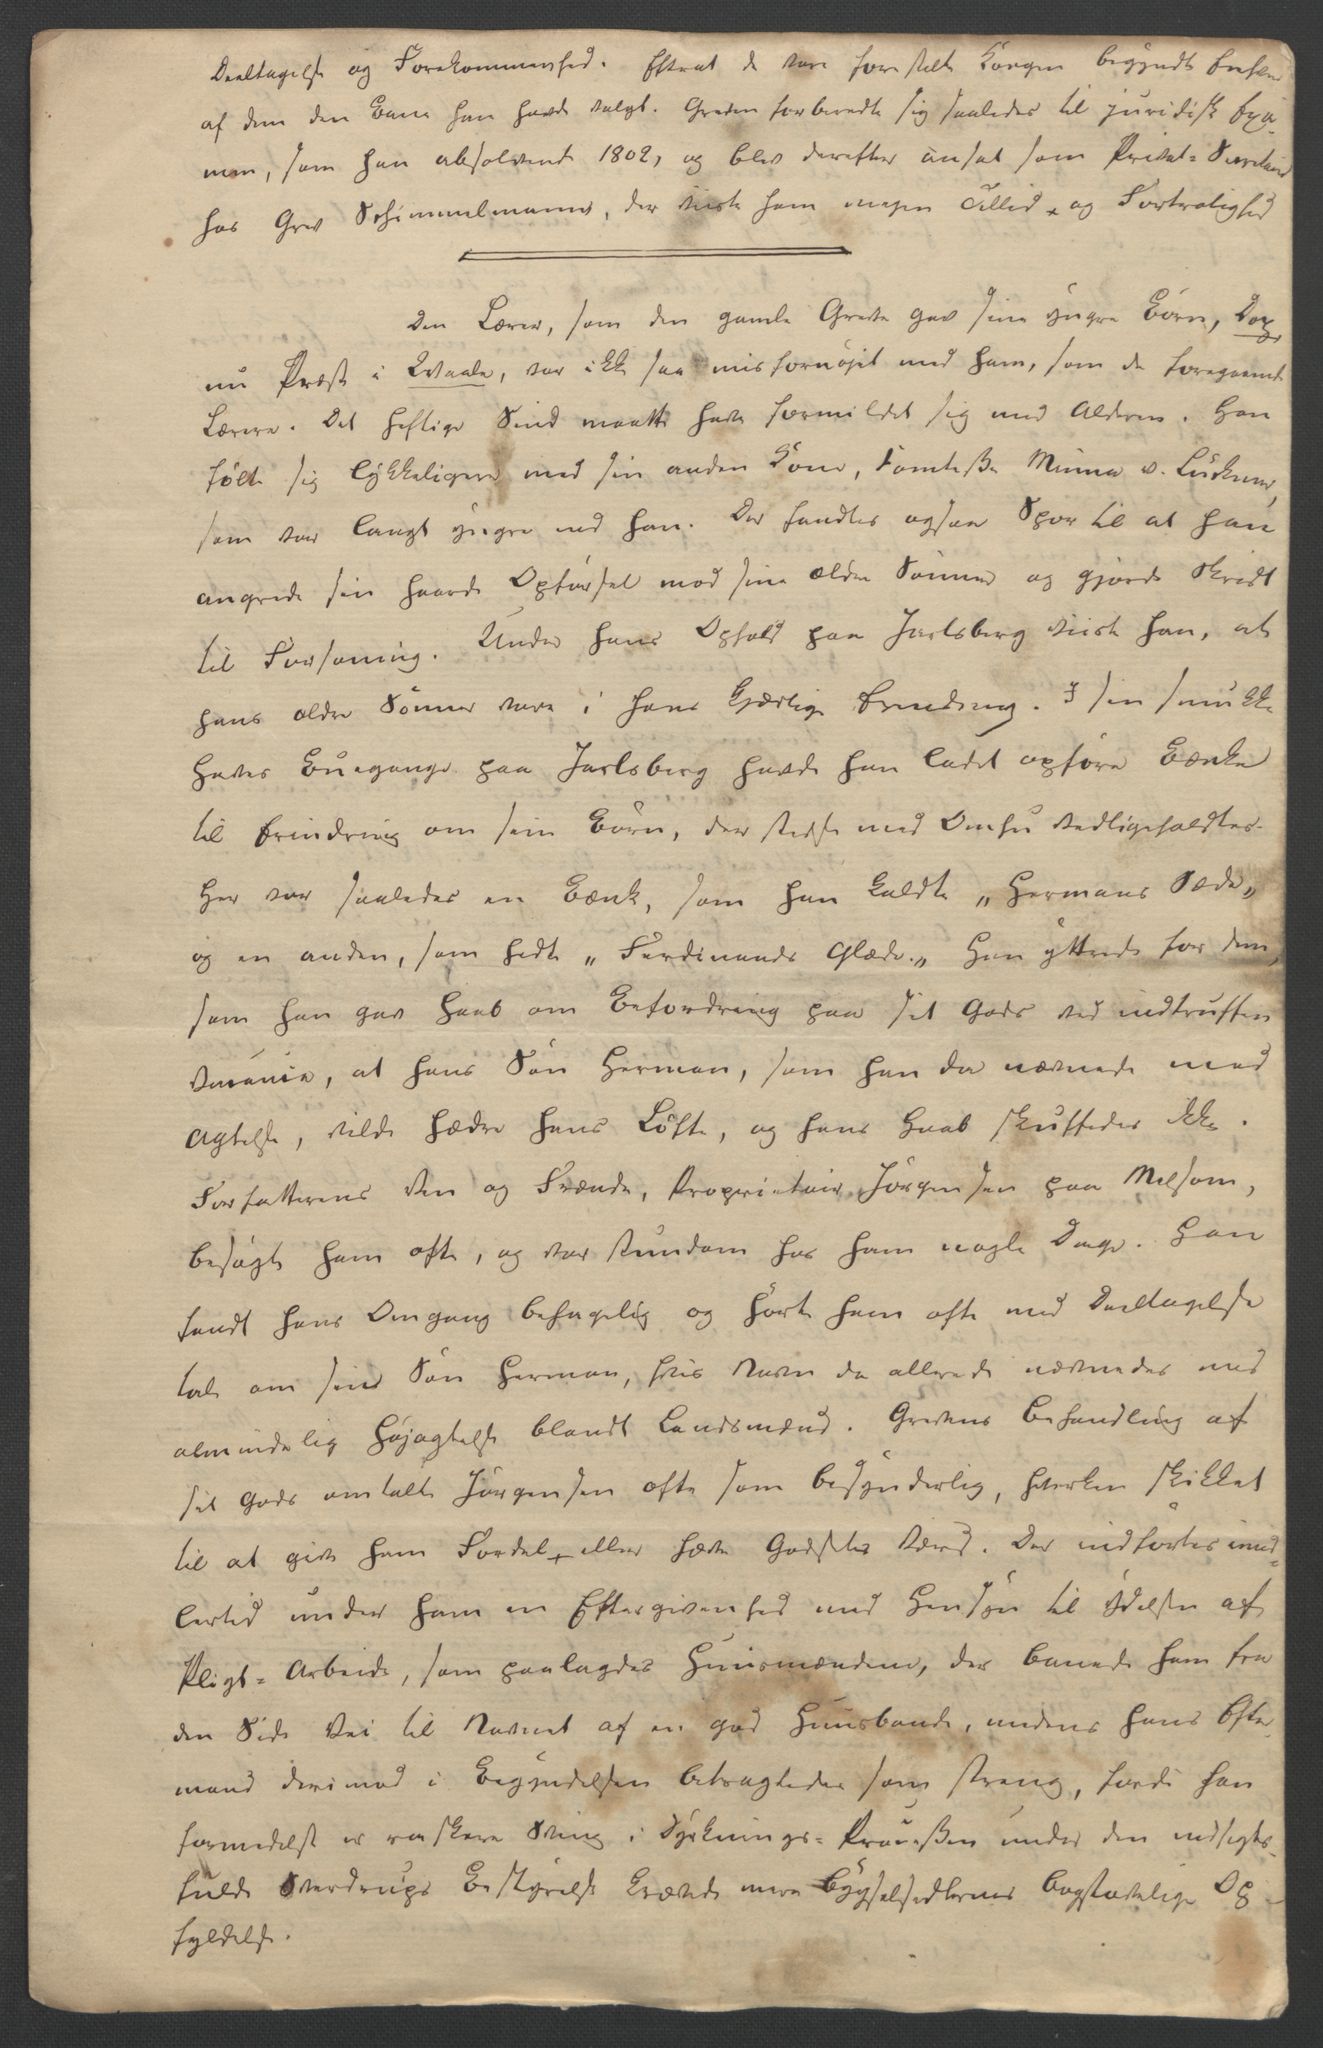 Deeltagelse og Forekommenhed. Efterat de vare forestilte Kongen begyndte Enhver
af dem den Bane han havde valgt. Greven forberedte sig saaledes til juridisk Exa-
men, som han absolverede 1802, og blev derefter ansat som Privat-Secretair
hos Grev Schimmelmann, der viiste ham megen Tillid og Fortrolighed
Den Lærer, som den gamle Greve gav sine yngre Børn,
nu Præst i Vaale, var ikke saa misfornøiet med ham, som de foregaaende
Lærere. Det heftige Sind maatte have formildet sig med Alderen. Han
følte sig lykkeligere med sin anden Kone, Comtesse Minna v. Luckner,
som var langt yngre end han. Der fandtes ogsaa Spor til at han
angrede sin haarde Opførsel mod sine ældre Sønner og gjorde Skridt
til Forsoning. Under hans Ophold paa Jarlsberg viiste han, at
hans ældre Sønner vare i hans kjærlige Erindring. I sin smukke
Haves Buegange paa Jarlsberg havde han ladet opføre Bænke
til Erindring om sine Børn, der stedse med Omhu vedligeholdtes.
Her var saaledes en Bænk, som han kaldte „Hermans Sæde„
og en anden, som hedte „Ferdinands Glæde.„ Han yttrede for dem,
som han gav Haab om Befordring paa sit Gods ved indtruffen
Vacance, at hans Søn Herman, som han da nævnede med
Agtelse, vilde hædre hans Løfte, og hans Haab skuffedes ikke.
Forfatterens Ven og Frænde, Proprietair Jørgensen paa Melsom,
besøgte ham ofte, og var stundom hos ham nogle Dage. Han
fandt hans Omgang behagelig og hørte ham ofte med Deeltagelse
tale om sin Søn Herman, hvis Navn da allerede nævnedes med
almindelig Højagtelse blandt Landsmænd. Grevens Behandling af
sit Gods omtalte Jørgensen ofte som besynderlig, hverken skikket
til at give ham Fordel eller hæve Godsets Værd. Der indførtes imid-
lertid under ham en Eftergivenhed med Hensyn til Ydelsen af
Pligt-Arbeide, som paalagdes Huusmændene, der banede ham fra
den Side Vei til Navnet af en god Huusbonde, medens hans Efter
mand derimod i Begyndelsen betragtedes som streng, fordi han
formedelst et raskere Sving i Dyrknings-Processen under den indsigts-
fulde Sverdrups Bestyrelse krævede mere Bygselsedlernes bogstavelige Op-
fyldelse.